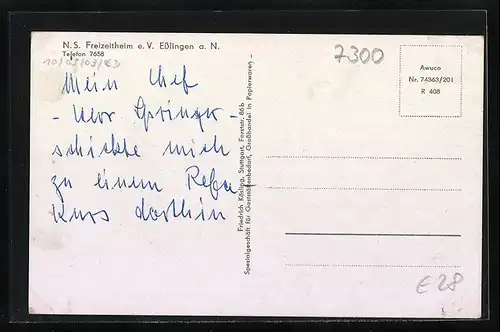 N.S. Freizeitheim e.V. Eßlingen a. N.
Telefon 7658
10/03/03/E3
Mein Chef
- Herr Springer -
schickte mich
zu einem Refa-
kurs dorthin
Friedrich Kösling, Stuttgart, Forststr. 86b
Spezialgeschäft für Gaststättenbedarf, Großhandel in Papierwaren -
7300
Awuco
Nr. 74363/201
R 408
€28